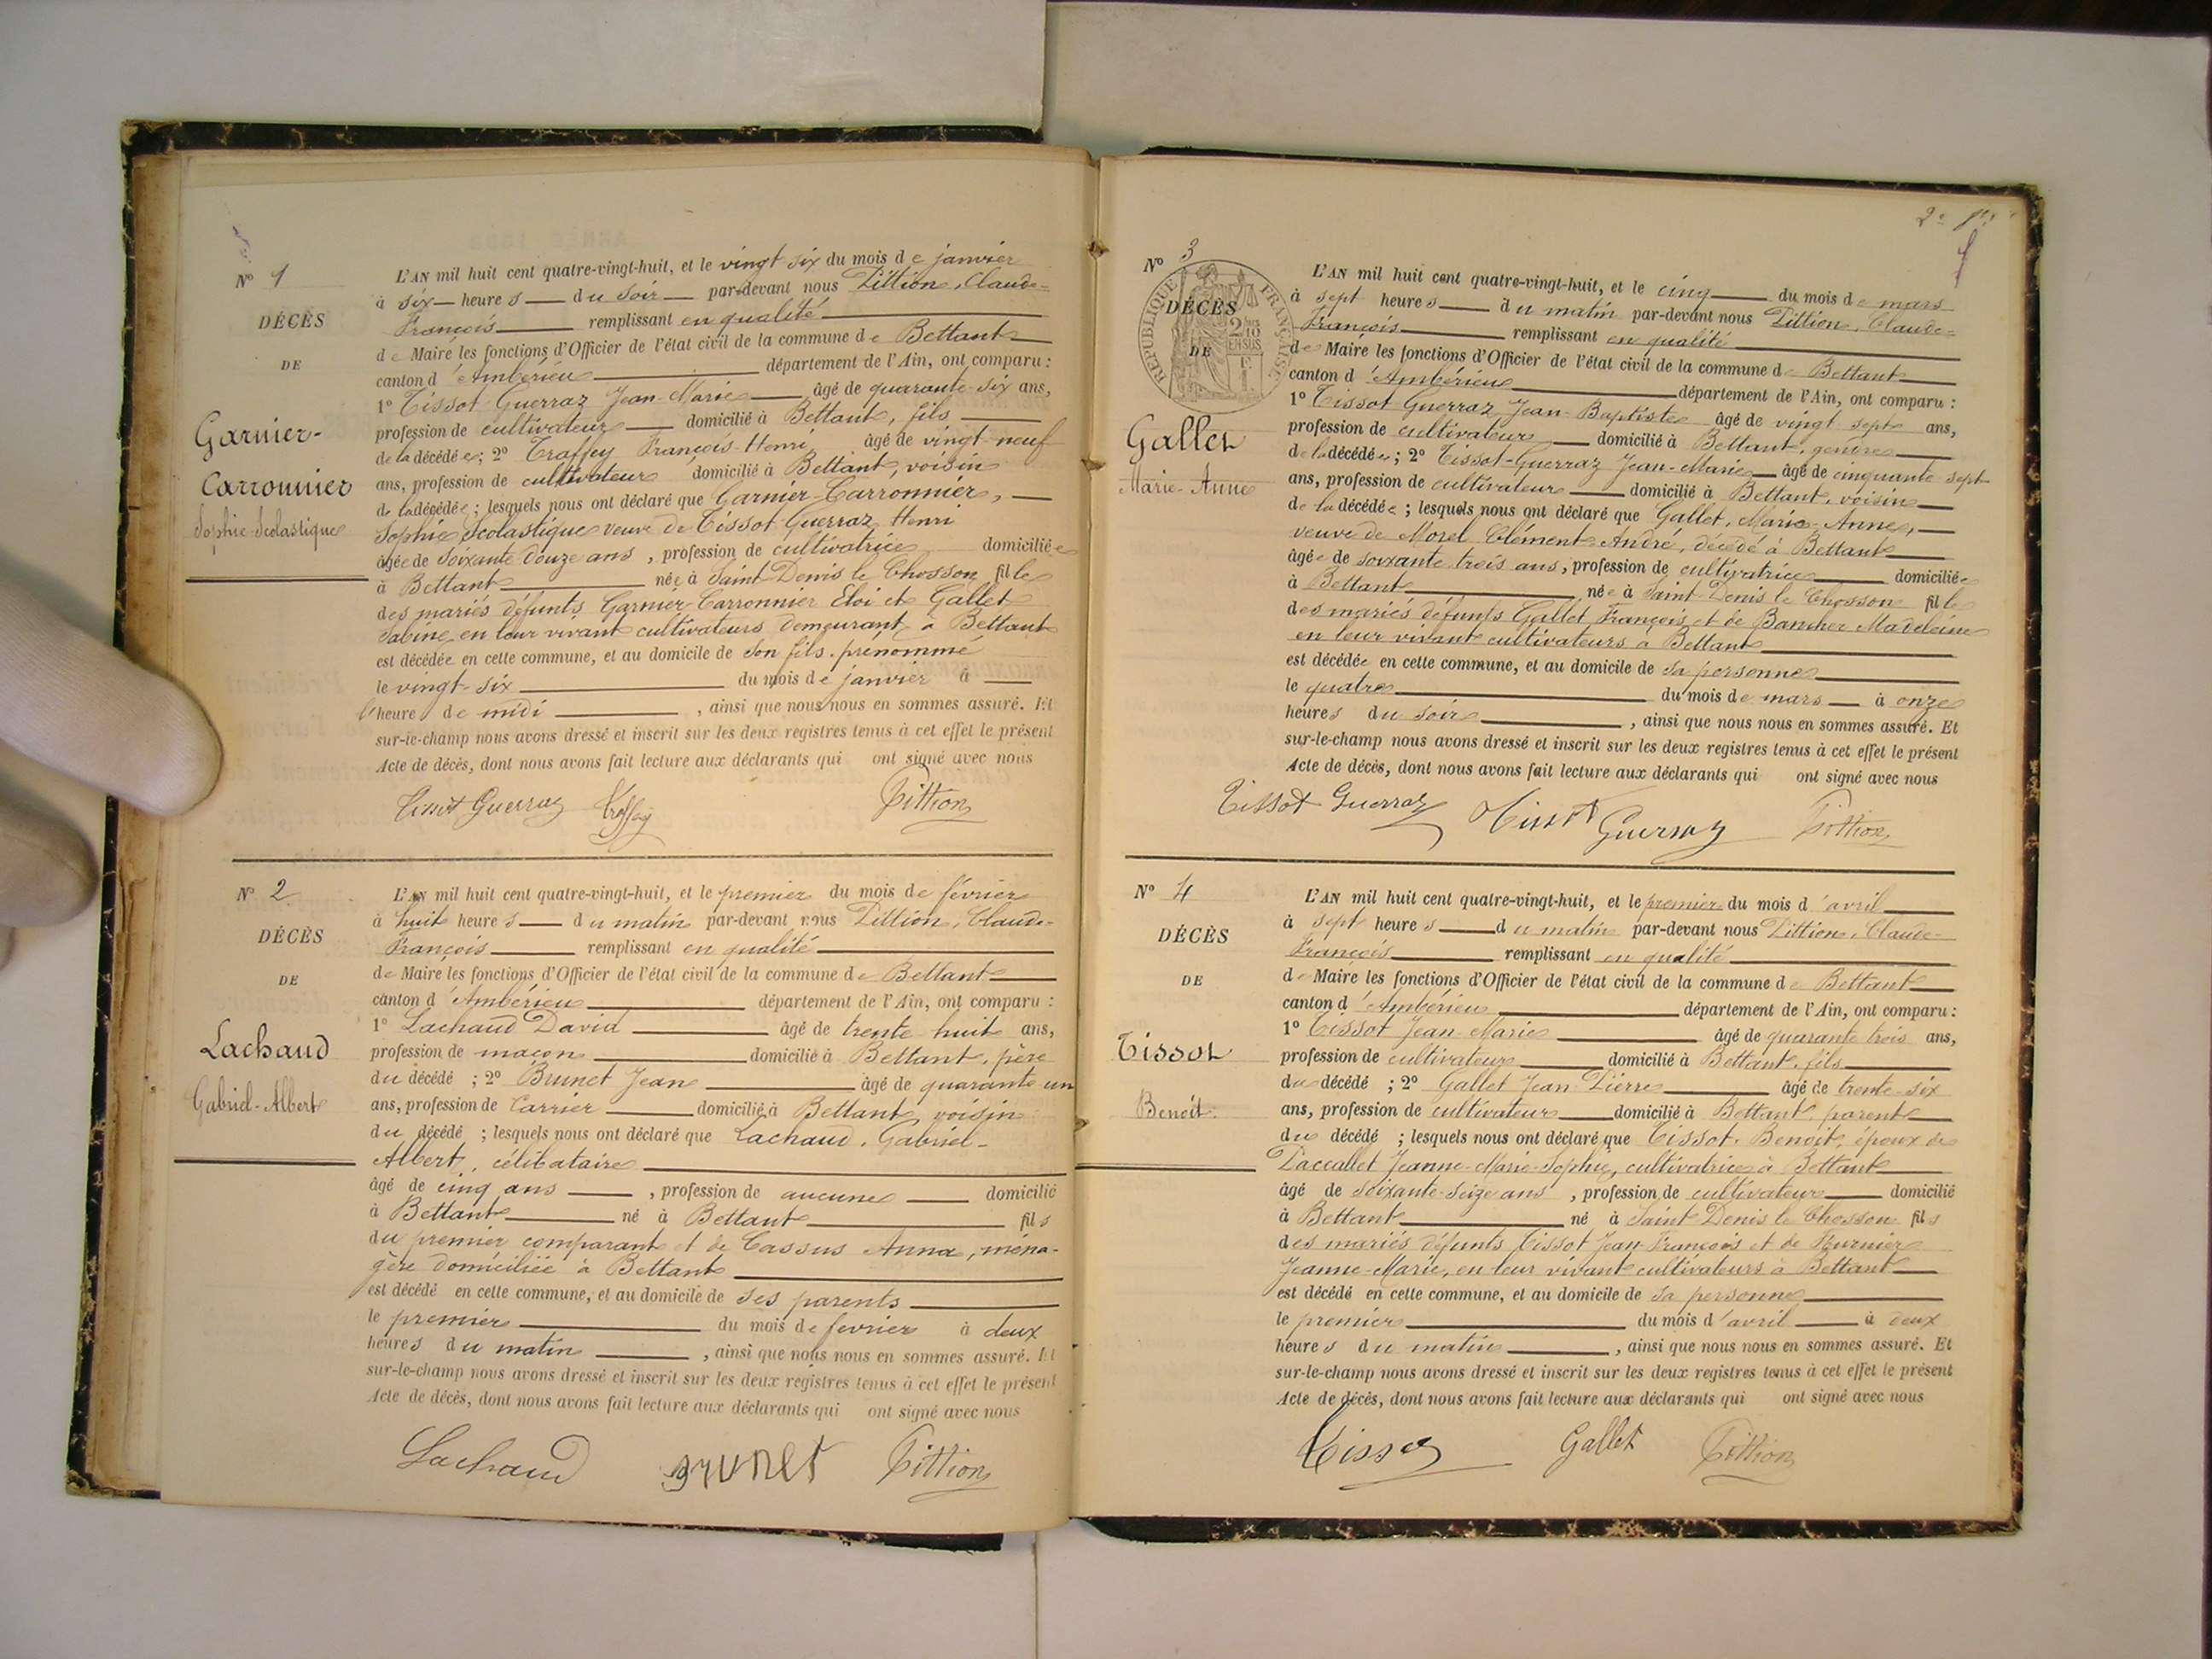 N° 1
DÉCÈS
DE
Garnier-
Carronnier
Sophie-Scolastique
L'AN mil huit cent quatre-vingt-huit, et le vingt six du mois de janvier
à six heures du soir par-devant nous Pittion, Claude-
François remplissant en qualité
de Maire les fonctions d'Officier de l'état civil de la commune de Bettant
canton d'Ambérieu département de l'Ain, ont comparu :
1° Tissot Guerraz Jean-Marie âgé de quarante-six ans,
profession de cultivateur domicilié à Bettant, fils
de la décédée ; 2° Traffey François-Henri âgé de vingt-neuf
ans, profession de cultivateur domicilié à Bettant, voisin
de la décédée ; lesquels nous ont déclaré que Garnier-Carronnier,
Sophie Scolastique veuve de Tissot Guerraz Henri
âgée de soixante douze ans, profession de cultivatrice domiciliée
à Bettant née à Saint-Denis le Chosson fille
des mariés défunts Garnier-Carronnier Eloi et Gallet
Sabine, en leur vivant cultivateurs demeurant à Bettant
est décédée en cette commune, et au domicile de son fils prénommé
le vingt-six du mois de janvier à
l'heure de midi, ainsi que nous nous en sommes assuré. Et
sur-le-champ nous avons dressé et inscrit sur les deux registres tenus à cet effet le présent
Acte de décès, dont nous avons fait lecture aux déclarants qui ont signé avec nous
Tissot Guerraz Traffey Pittion
N° 2
DÉCÈS
DE
Lachaud
Gabriel-Albert
L'AN mil huit cent quatre-vingt-huit, et le premier du mois de février
à huit heures du matin par-devant nous Pittion, Claude-
François remplissant en qualité
de Maire les fonctions d'Officier de l'état civil de la commune de Bettant
canton d'Ambérieu département de l'Ain, ont comparu :
1° Lachaud David âgé de trente huit ans,
profession de maçon domicilié à Bettant, père
du décédé ; 2° Brunet Jean âgé de quarante un
ans, profession de Carrier domicilié à Bettant, voisin
du décédé ; lesquels nous ont déclaré que Lachaud, Gabriel-
Albert, célibataire
âgé de cinq ans, profession de aucune domicilié
à Bettant né à Bettant fils
du premier comparant et de Cassus Anna, ména-
gère domiciliée à Bettant
est décédé en cette commune, et au domicile de ses parents
le premier du mois de fevrier à deux
heures du matin, ainsi que nous nous en sommes assuré. Et
sur-le-champ nous avons dressé et inscrit sur les deux registres tenus à cet effet le présent
Acte de décès, dont nous avons fait lecture aux déclarants qui ont signé avec nous
Lachaud Brunet Pittion
2e
N° 3
RÉPUBLIQUE FRANÇAISE
2/10 EN SUS
DÉCÈS
DE
Gallet
Marie-Anne
L'AN mil huit cent quatre-vingt-huit, et le cinq du mois de mars
à sept heures du matin par-devant nous Pittion, Claude-
François remplissant en qualité
de Maire les fonctions d'Officier de l'état civil de la commune de Bettant
canton d'Ambérieu département de l'Ain, ont comparu :
1° Tissot Guerraz Jean-Baptiste âgé de vingt sept ans,
profession de cultivateur domicilié à Bettant, gendre
de la décédée ; 2° Tissot-Guerraz Jean-Marie âgé de cinquante sept
ans, profession de cultivateur domicilié à Bettant, voisin
de la décédée ; lesquels nous ont déclaré que Gallet, Marie-Anne,
veuve de Morel Clément-André, décédé à Bettant
âgée de soixante trois ans, profession de cultivatrice domiciliée
à Bettant née à Saint-Denis le Chosson fille
des mariés défunts Gallet François et de Bancher Madeleine
en leur vivant cultivateurs à Bettant
est décédée en cette commune, et au domicile de sa personne
le quatre du mois de mars à onze
heures du soir, ainsi que nous nous en sommes assuré. Et
sur-le-champ nous avons dressé et inscrit sur les deux registres tenus à cet effet le présent
Acte de décès, dont nous avons fait lecture aux déclarants qui ont signé avec nous
Tissot Guerraz Tissot Guerraz Pittion
N° 4
DÉCÈS
DE
Tissot
Benoît
L'AN mil huit cent quatre-vingt-huit, et le premier du mois d'avril
à sept heures du matin par-devant nous Pittion, Claude-
François remplissant en qualité
de Maire les fonctions d'Officier de l'état civil de la commune de Bettant
canton d'Ambérieu département de l'Ain, ont comparu :
1° Tissot Jean-Marie âgé de quarante trois ans,
profession de cultivateur domicilié à Bettant, fils
du décédé ; 2° Gallet Jean-Pierre âgé de trente-six
ans, profession de cultivateur domicilié à Bettant, parent
du décédé ; lesquels nous ont déclaré que Tissot, Benoit, époux de
Paccallet Jeanne-Marie-Sophie, cultivatrice à Bettant
âgé de soixante-seize ans, profession de cultivateur domicilié
à Bettant né à Saint-Denis le Chosson fils
des mariés défunts Tissot Jean-François et de Fournier
Jeanne-Marie, en leur vivant cultivateurs à Bettant
est décédé en cette commune, et au domicile de sa personne
le premier du mois d'avril à deux
heures du matin, ainsi que nous nous en sommes assuré. Et
sur-le-champ nous avons dressé et inscrit sur les deux registres tenus à cet effet le présent
Acte de décès, dont nous avons fait lecture aux déclarants qui ont signé avec nous
Tissot Gallet Pittion